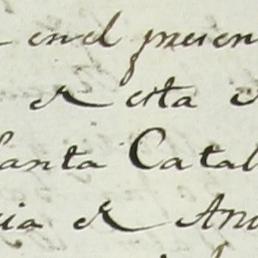 en el presen
de esta
Santa Catal
cia de An